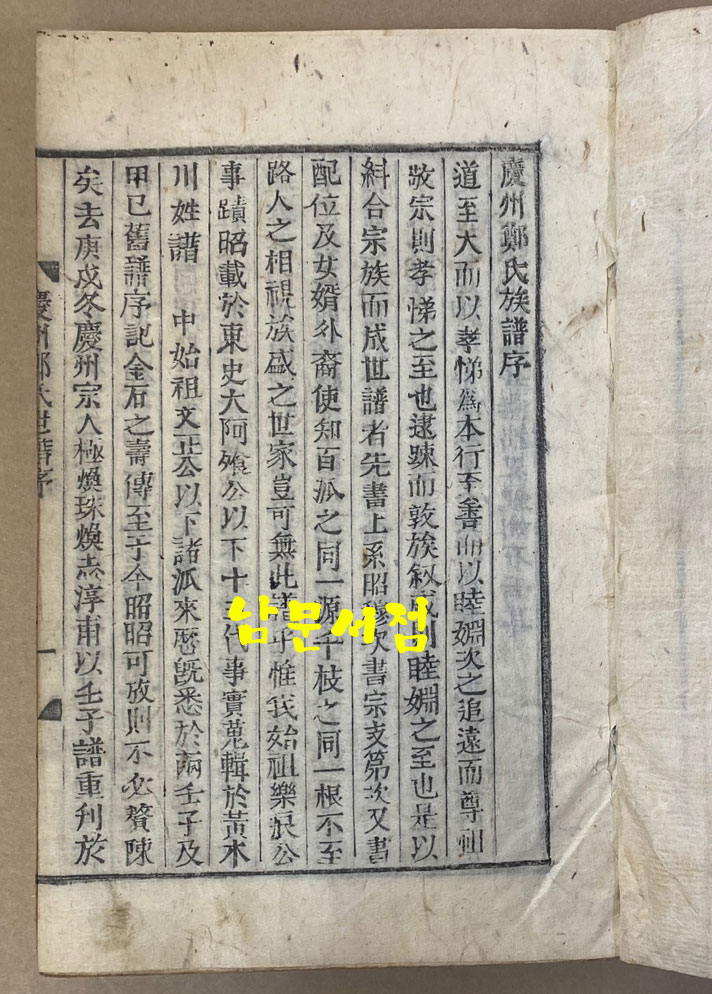 慶州鄭氏族譜序
道至大而以孝悌爲本行至善而以睦婣次之追遠而尊祖
敬宗則孝悌之至也逮踈而敦族叙戚則睦婣之至也是以
糾合宗族而成世譜者先書上系昭穆次書宗支第次又書
配位及女婿外裔使知百派之同一源千枝之同一根不至
路人之相視族盛之世家豈可無此譜乎惟我始祖樂浪公
事蹟昭載於東史大阿飱公以下十代事實蒐輯於黃水
川姓譜 中始祖文正公以下諸派來歷旣悉於兩壬子及
甲巳舊譜序記金石之壽傳至于今昭昭可攷則不必贅陳
矣去庚戍冬慶州宗人極煥珠煥志淳甫以壬子譜重刊於
慶州鄭氏世譜序
一
남문서점